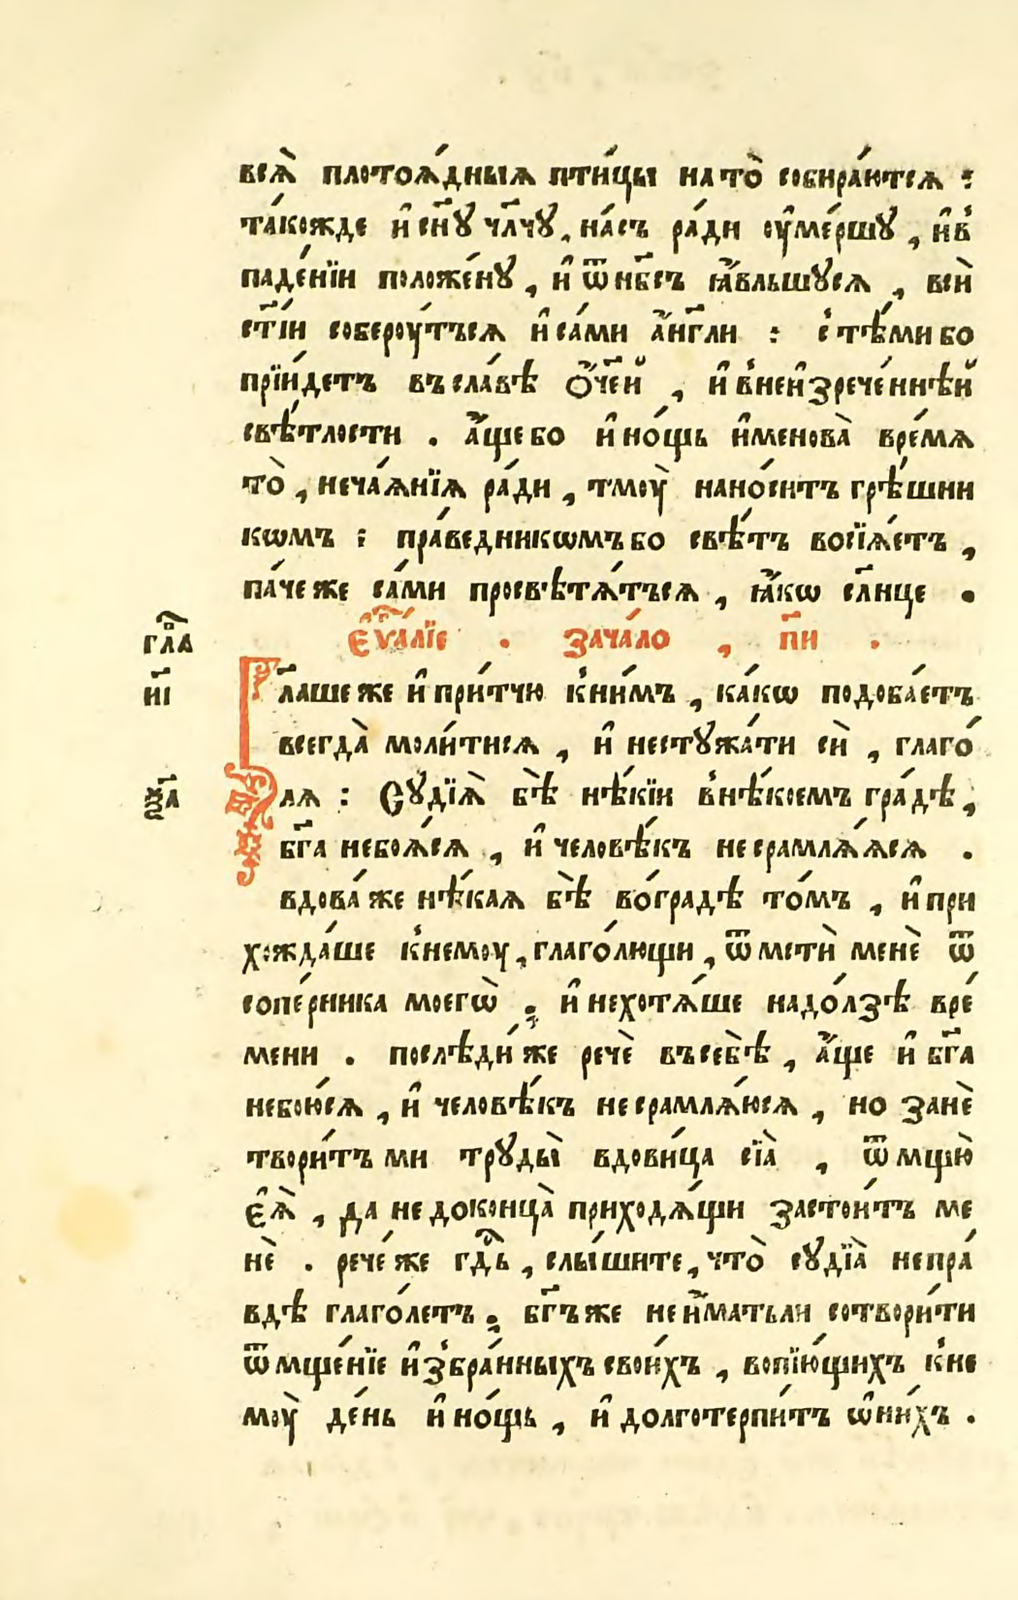 всѧ̀ плотоѧ́дныѧ пти́цы на то̀ собира́ютсѧ :
та́кожде и҆ сн҃ꙋ чл҃чꙋ, на́съ ра́ди оу҆ме́ршꙋ , и҆ в̾
паде́нїи положе́нꙋ , и҆ ѿ нб҃съ ꙗ҆́вльшꙋсѧ , вси̇̀
ст҃і́и соберꙋ́тъсѧ и҆ са́ми а҆́нг҃ли : с̾ тѣ́ми бо
прїи́детъ въ сла́вѣ ѻ҆ч҃ей , и҆ в̾ неи҆зрече́ннѣй
свѣ́тлости . а҆́ще бо и҆ но́щь и҆менова̀ вре́мѧ
то̀ , неча́ѧнїѧ ра́ди , тмоу̀ нано́ситъ грѣ́шни
кѡмъ : пра́ведникѡмъ бо свѣ́тъ восїѧ́етъ ,
па́че же са́ми просвѣтѧ́тъсѧ , ꙗ҆́кѡ сл҃нце .
є҆ѵⷢ҇а́лїе . зача́ло , п҃и .
гла
и҃і
Гл҃аше же и҆ при́тчю к̾ ни́мъ , ка́кѡ подоба́етъ
всегда̀ моли́тисѧ , и҆ не стꙋжа́ти сѝ , глаго́
за҃
лѧ : Сꙋдїѧ̀ бѣ̀ нѣ́кїи в̾ нѣ́коемъ гра́дѣ ,
бг҃а не боѧ́сѧ , и҆ человѣ́къ не срамлѧ́ѧсѧ .
вдова́ же нѣ́каѧ бѣ̀ во́ градѣ то́мъ , и҆ при
хожда́ше к̾ немоу , глаго́лющи , ѿмстѝ менѐ ѿ
сопе́рника моегѡ̀ : и҆ не хотѧ́ше на до́лзѣ вре́
мени . послѣди́ же речѐ въ себѣ̀ , а҆́ще и҆ бг҃а
не бою́сѧ , и҆ человѣ́къ не срамлѧ́юсѧ , но занѐ
твори́тъ ми трꙋды̀ вдови́ца сїѧ̀ , ѿмщю̀
є҆ѧ̀ , да не до конца̀ приходѧ́щи застои́тъ ме
нѐ . рече́ же гдⷭ҇ь , слы́шите , что̀ сꙋдїѧ̀ непра́
вдѣ глаго́летъ : бг҃ъ же не и҆́мать ли сотвори́ти
ѿмще́нїе и҆збра́нныхъ свои́хъ , вопїю́щихъ к̾ не
моу̀ де́нь и҆ но́щь , и҆ долготерпи́тъ ѡ҆ ни́хъ .